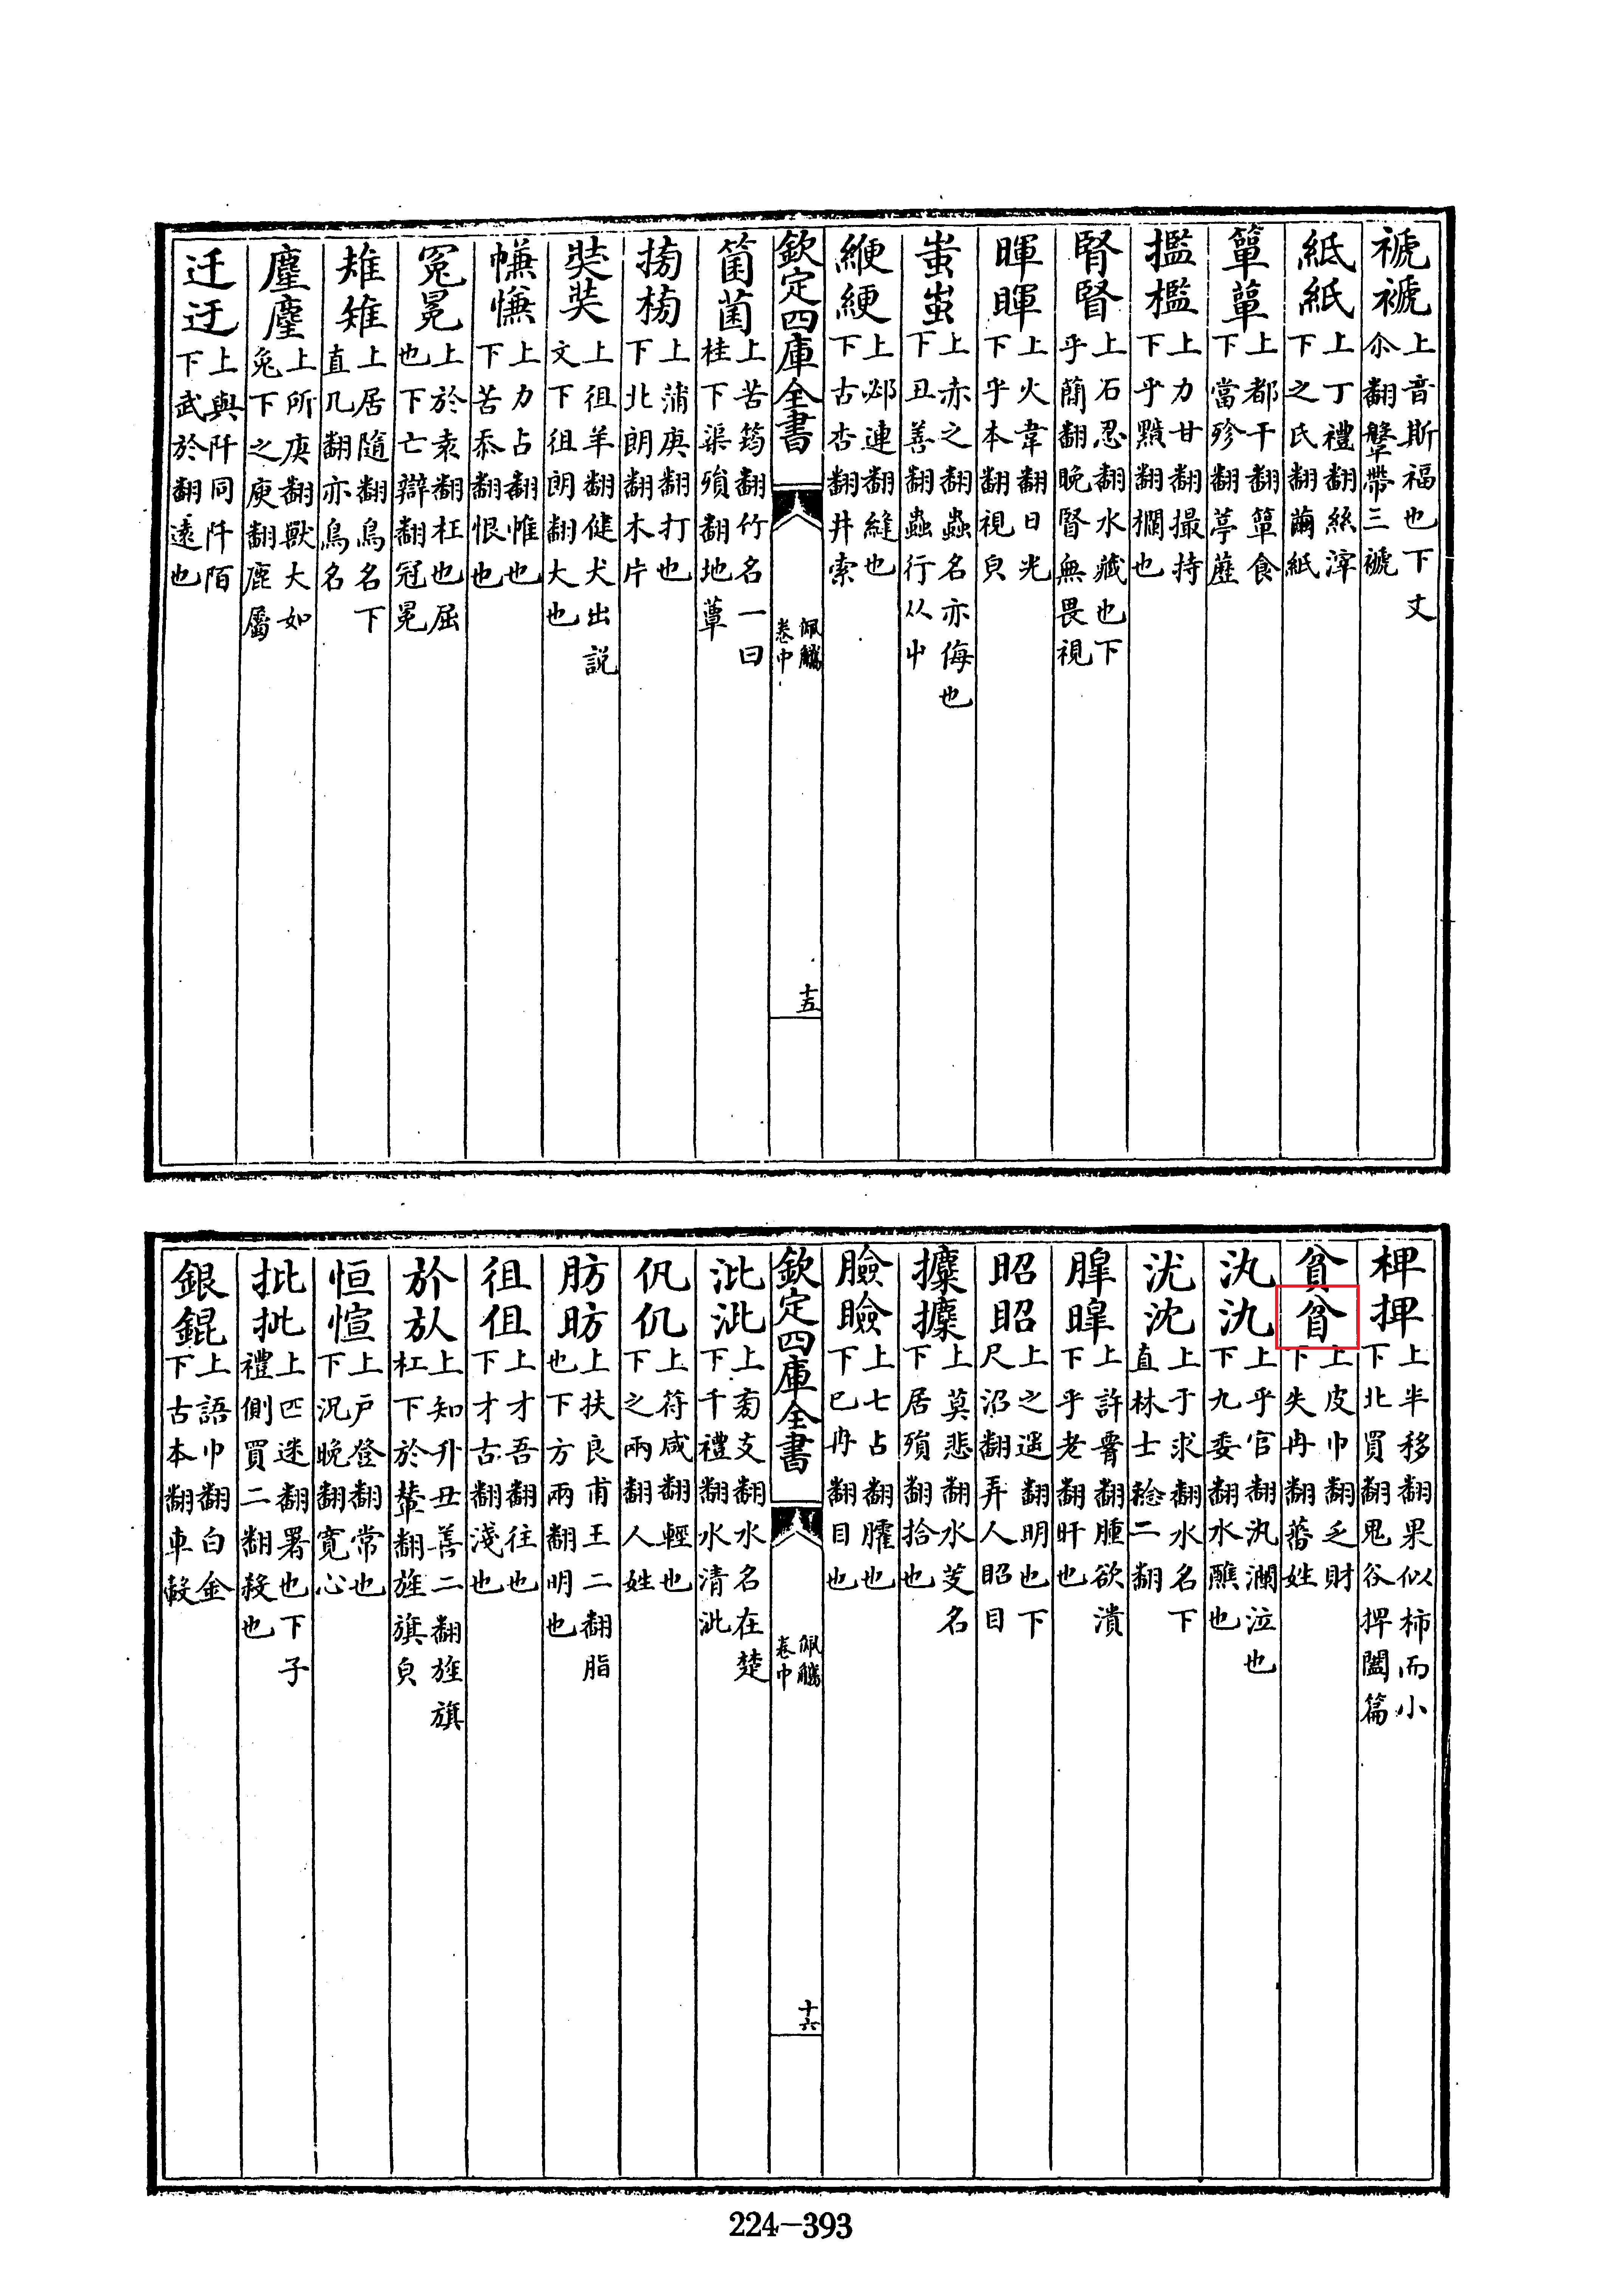 禠褫上音斯福也下丈尒翻鞶帶三褫
紙紙上丁禮翻絲滓下之氏翻繭紙
簞蕇上都干翻簞食下當殄翻葶藶
㩜檻上力甘翻撮持下乎黤翻欄也
腎䀘上石忍翻水藏也下乎蕳翻晚䀘無畏視
暉睴上火韋翻日光下乎本翻視皃
蚩䖝上赤之翻蟲名亦侮也下丑善翻蟲行从屮
緶綆上邲連翻縫也下古杏翻井索
欽定四庫全書
佩觿卷中
十五
箘菌上苦筠翻竹名一曰桂下渠殞翻地蕈
搒榜上蒲庚翻打也下北朗翻木片
奘奘上徂羊翻健犬出説文下徂朗翻大也
㡘慊上力占翻帷也下苦忝翻恨也
冤冕上於袁翻枉也屈也下亡辯翻冠冕
雉上居隨翻鳥名下直几翻亦鳥名
麈上所庚翻獸大如兔下之庾翻鹿屬
迂上與阡同阡陌下武於翻遠也
椑捭上半移翻果似柿而小下北買翻鬼谷捭闔篇
貧上皮巾翻乏財下失冉翻蕃姓
汍氿上乎官翻汍瀾泣也下九委翻水醮也
沋沈上于求翻水名下直林士稔二翻
䐲暤上許膏翻腫欲潰下乎老翻旰也
昭眧上之遥翻明也下尺沼翻弄人眧目
攗上莫悲翻水芰名下居殞翻拾也
臉瞼上七占翻臛也下巳冉翻目也
欽定四庫全書
佩觿卷中
十六
沘泚上蒭支翻水名在楚下千禮翻水清泚
㠶仉上符咸翻輕也下之兩翻人姓
肪昉上扶良甫王二翻脂也下方兩翻明也
徂伹上才吾翻往也下才古翻淺也
㫃上知升丑善二翻旌旗杠下於輦翻旌旗皃
恒愃上户登翻常也下況晚翻寛心
批㧗上匹迷翻署也下子禮側買二翻殺也
銀錕上語巾翻白金下古本翻車轂
224—393